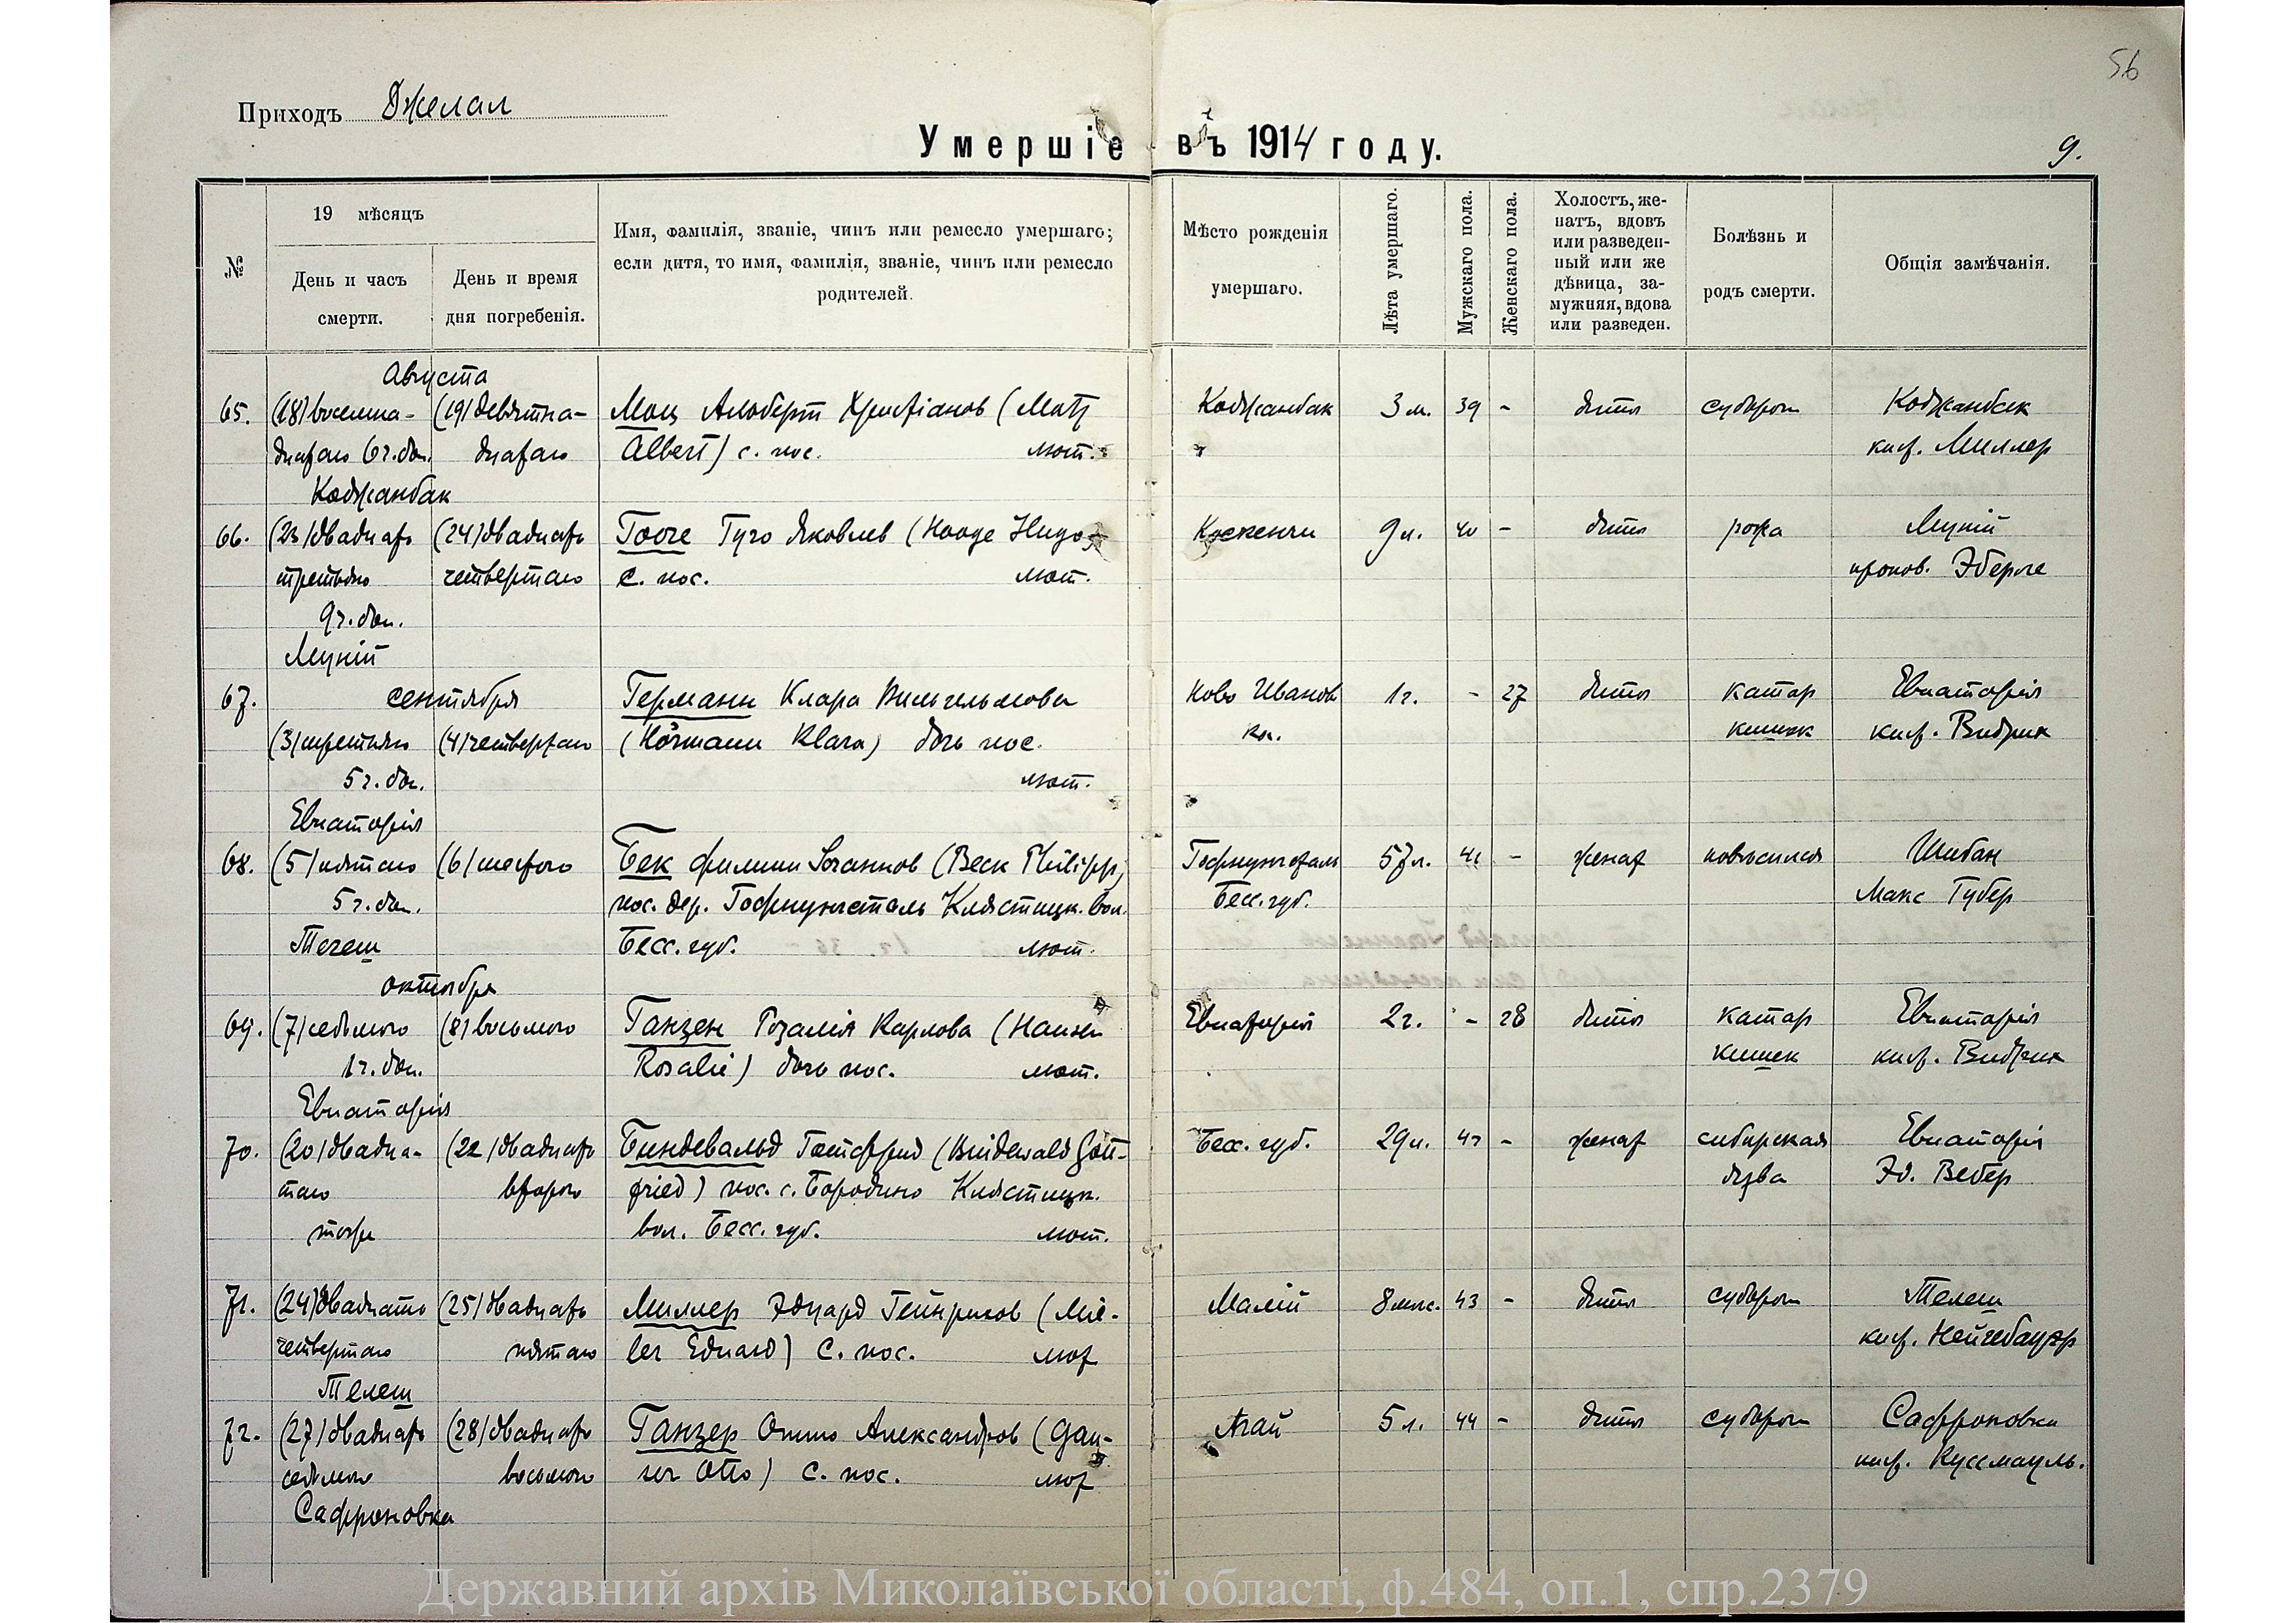 56
Приходъ Джелал
Умершіе въ 1914 году.
9.
№
19 мѣсяцъ
День и часъ смерти.
День и время дня погребенія.
Имя, фамилія, званіе, чинъ или ремесло умершаго;
если дитя, то имя, фамилія, званіе, чинъ или ремесло
родителей.
Мѣсто рожденія
умершаго.
Лѣта умершаго.
Мужскаго пола.
Женскаго пола.
Холостъ, же-
натъ, вдовъ
или разведен-
ный или же
дѣвица, за-
мужняя, вдова
или разведен.
Болѣзнь и
родъ смерти.
Общія замѣчанія.
Августа
65. (18) восемна- (19) девятна- Мац Альберт Христіанов (Matz Коджанбак 3 м. 39 - дитя судорги Коджанбак
дцатаго 6 ч. дн. дцатаго Albert) с. пос. лют. кист. Миллер
Коджанбак
66. (23) двадцать (24) двадцать Гооге Гуго Яковлев (Hooge Hugo) 9 л. 40 - дитя рожа
третьяго четвертаго с. пос. лют. Эберле
9 ч. дн.
67. сентября Германн Клара Вильгельмова Ново Иванов 1 г. - 27 дитя катар Евпаторія
(3) третьяго (4) четвертаго (Hörmann Klara) дочь пос. кишек
5 ч. дн. лют.
Евпаторія
68. (5) пятаго (6) шестого Бек Филипп Іоганнов (Beck Philipp) 57 л. 41 - женат повѣсился Шибан
5 ч. дн. пос. дер. Гофнунгсталь Клястицк. вол. Бесс. губ. Макс Губер
Тегеш Бесс. губ. лют.
октября
69. (7) седьмого (8) восьмого Ганзен Розалія Карлова (Hansen Евпаторія 2 г. - 28 дитя катар Евпаторія
1 ч. дн. Rosalie) дочь пос. лют. кишек
Евпаторія
70. (20) двадца- (22) двадцать Биндевальд Готфрид (Bindewald Gott- Бесс. губ. 29 л. 42 - женат сибирская Евпаторія
таго второго fried) пос. с. Бородино Клястицк. язва Эд. Вебер
вол. Бесс. губ. лют.
71. (24) двадцать (25) двадцать Миллер Эдуард Гейнрихов (Mil- 8 мѣс. 43 - дитя судорги Телеш
четвертаго пятаго ler Eduard) с. пос. лют. кист. Нейгебауэр
Телеш
72. (27) двадцать (28) двадцать Ганзер Отто Александров (Gan- Агай 5 л. 44 - дитя судорги Сафроновка
седьмого восьмого ser Otto) с. пос. лют. кист. Куссмауль.
Сафроновка
Державний архів Миколаївської області, ф.484, оп.1, спр.2379